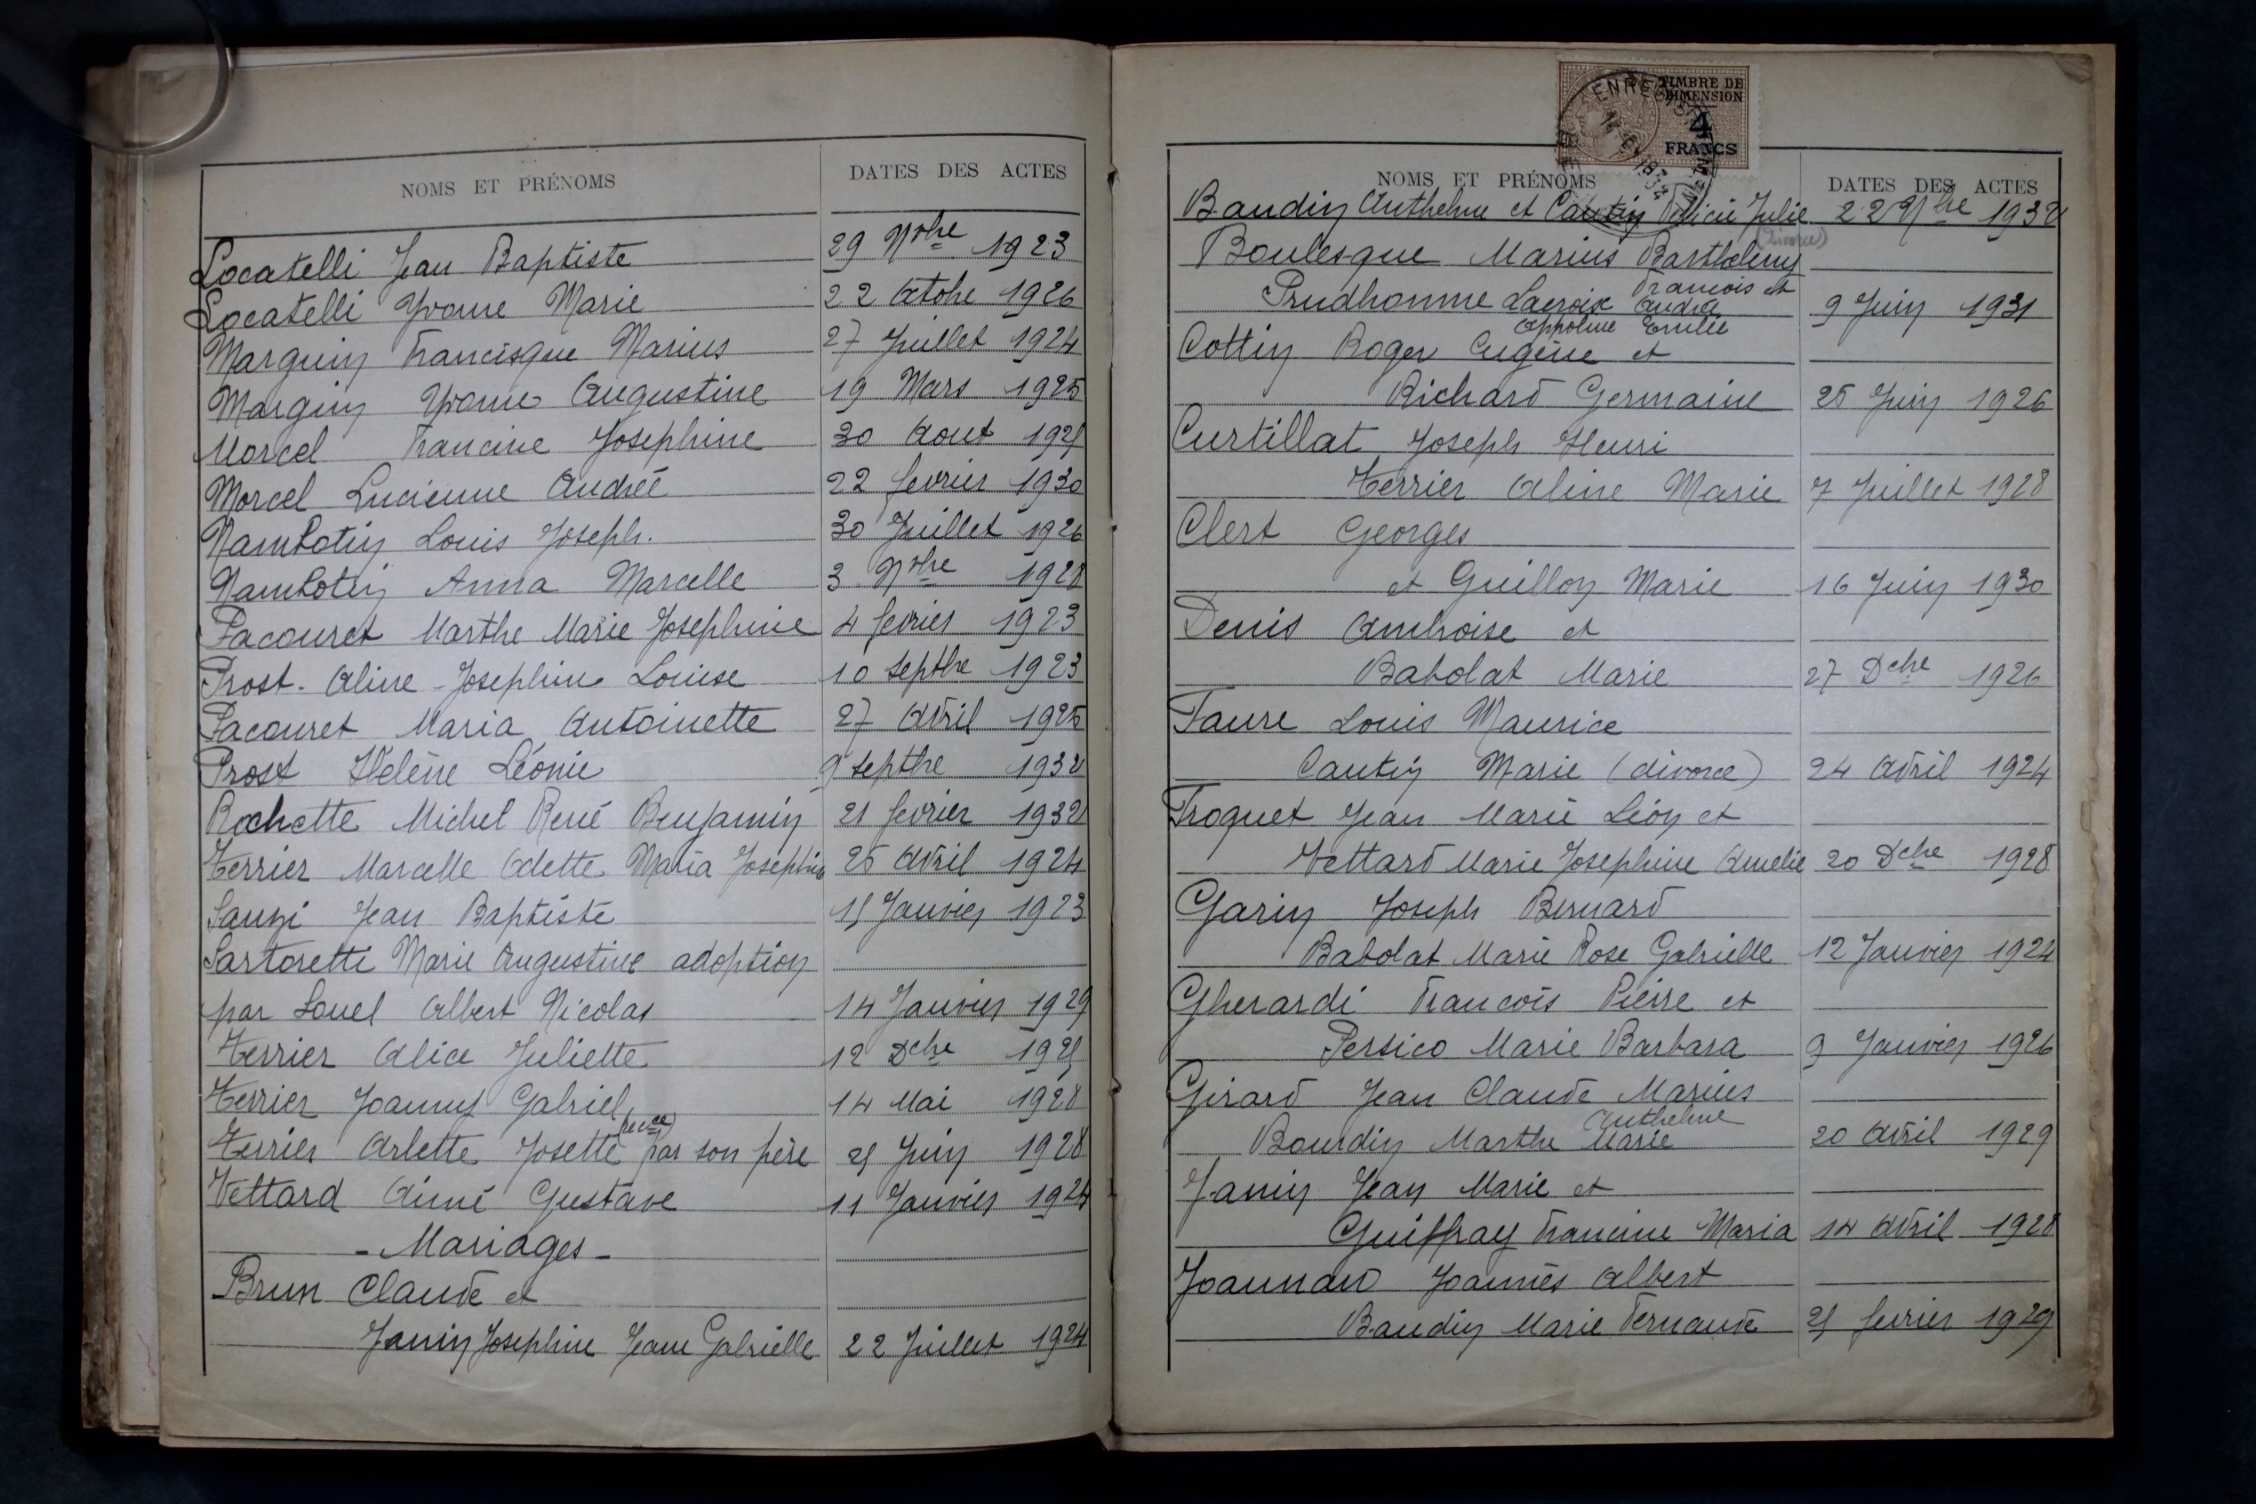 NOMS ET PRÉNOMS
DATES DES ACTES
Locatelli Jean Baptiste 29 Nbre 1923
Locatelli Yvonne Marie 22 Octobre 1926
Marguin Francisque Marius 27 Juillet 1924
Marguin Yvonne Augustine 19 Mars 1925
Morcel Francine Josephine 30 Aout 1925
Morcel Lucienne Andrée 22 fevrier 1930
Nambotin Louis Joseph. 30 Juillet 1926
Nambotin Anna Marcelle 3 Nbre 1928
Pacouret Marthe Marie Josephine 4 fevrier 1923
Prost. Aline Josephine Louise 10 septbre 1923
Pacouret Maria Antoinette 27 Avril 1925
Prost Hélène Léonie 9 septbre 1932
Rochette Michel René Benjamin 21 fevrier 1932
Terrier Marcelle Odette Maria Josephine 25 Avril 1924
Sanzi Jean Baptiste 15 Janvier 1923
Sartoretti Marie Augustine adoption
par Louel Albert Nicolas 14 Janvier 1929
Terrier Alice Juliette 12 Dcbre 1925
Terrier Joanny Gabriel 14 Mai 1928
Terrier Arlette Josette par son père 25 Juin 1928
Vettard Aimé Gustave 11 Janvier 1924
- Mariages -
Brun Claude et
Janin Josephine Jeanne Gabrielle 22 Juillet 1924
TIMBRE DE
DIMENSION
4
FRANCS
NOMS ET PRÉNOMS
DATES DES ACTES
Baudin Anthelme et Cantin Félicie Julie 22 Nbre 1932
(divorce)
Boulesque Marius Barthelemy
François et
Prudhomme Lacroix Andréa 9 Juin 1931
Appoline Emilie
Cottin Roger Eugène et
Richard Germaine 25 Juin 1926
Curtillat Joseph Henri
Terrier Aline Marie 7 Juillet 1928
Clert Georges
et Guillon Marie 16 Juin 1930
Denis Ambroise et
Babolat Marie 27 Dcbre 1926
Faure Louis Maurice
Cantin Marie (divorce) 24 Avril 1924
Froquet Jean Marie Léon et
Vettard Marie Josephine Amelie 20 Dcbre 1928
Garin Joseph Bernard
Babolat Marie Rose Gabrielle 12 Janvier 1924
Gherardi François Pierre et
Persico Marie Barbara 9 Janvier 1926
Girard Jean Claude Marius
Anthelme
Bourdin Marthe Marie 20 Avril 1929
Janin Jean Marie et
Guiffray Francine Maria 14 Avril 1928
Joannard Joannès Albert
Baudin Marie Fernande 25 fevrier 1929